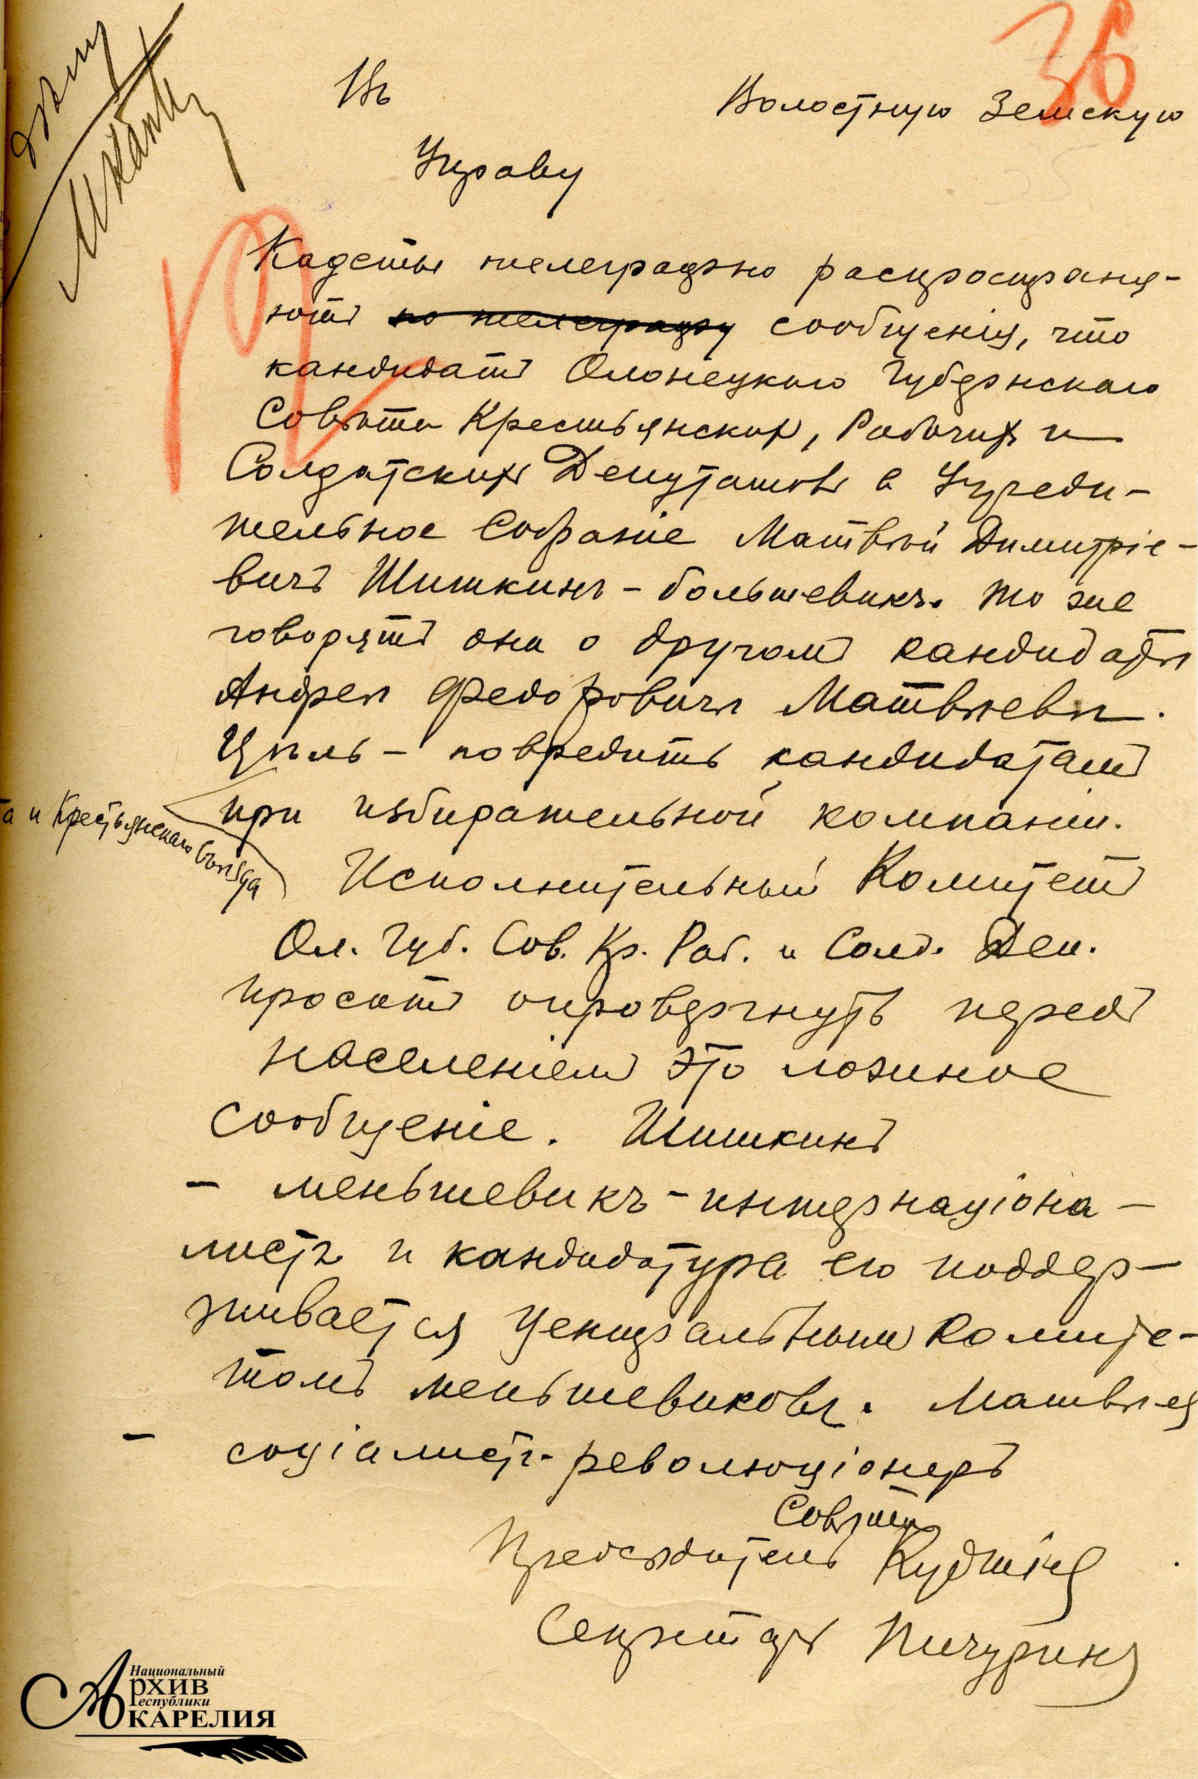 36
Въ Волостную Земскую
Управу
Кадеты телеграфно распространя-
ютъ по телеграфу сообщенія, что
кандидатъ Олонецкаго Губернскаго
Совѣта Крестьянских, Рабочих и
Солдатских Депутатовъ в Учреди-
тельное Собраніе Матвѣй Димитріе-
вичъ Шишкинъ - большевикъ. То же
говорятъ они о другомъ кандидатѣ
Андреѣ Федоровичѣ Матвѣевѣ.
Цѣль - повредить кандидатамъ
при избирательной компаніи.
та и Крестьянскаго Съѣзда
Исполнительный Комитетъ
Ол. Губ. Сов. Кр. Раб. и Солд. Деп.
просятъ опровергнуть передъ
населеніемъ это ложное
сообщеніе. Шишкинъ
- меньшевикъ - интернаціона-
листъ и кандидатура его поддер-
живается Центральнымъ Комите-
томъ меньшевиковъ. Матвѣев
- соціалистъ-революціонеръ
Совѣта
Предсѣдатель Кудшін
Секретарь Пичурин
Национальный
Архив
Республики
Карелия